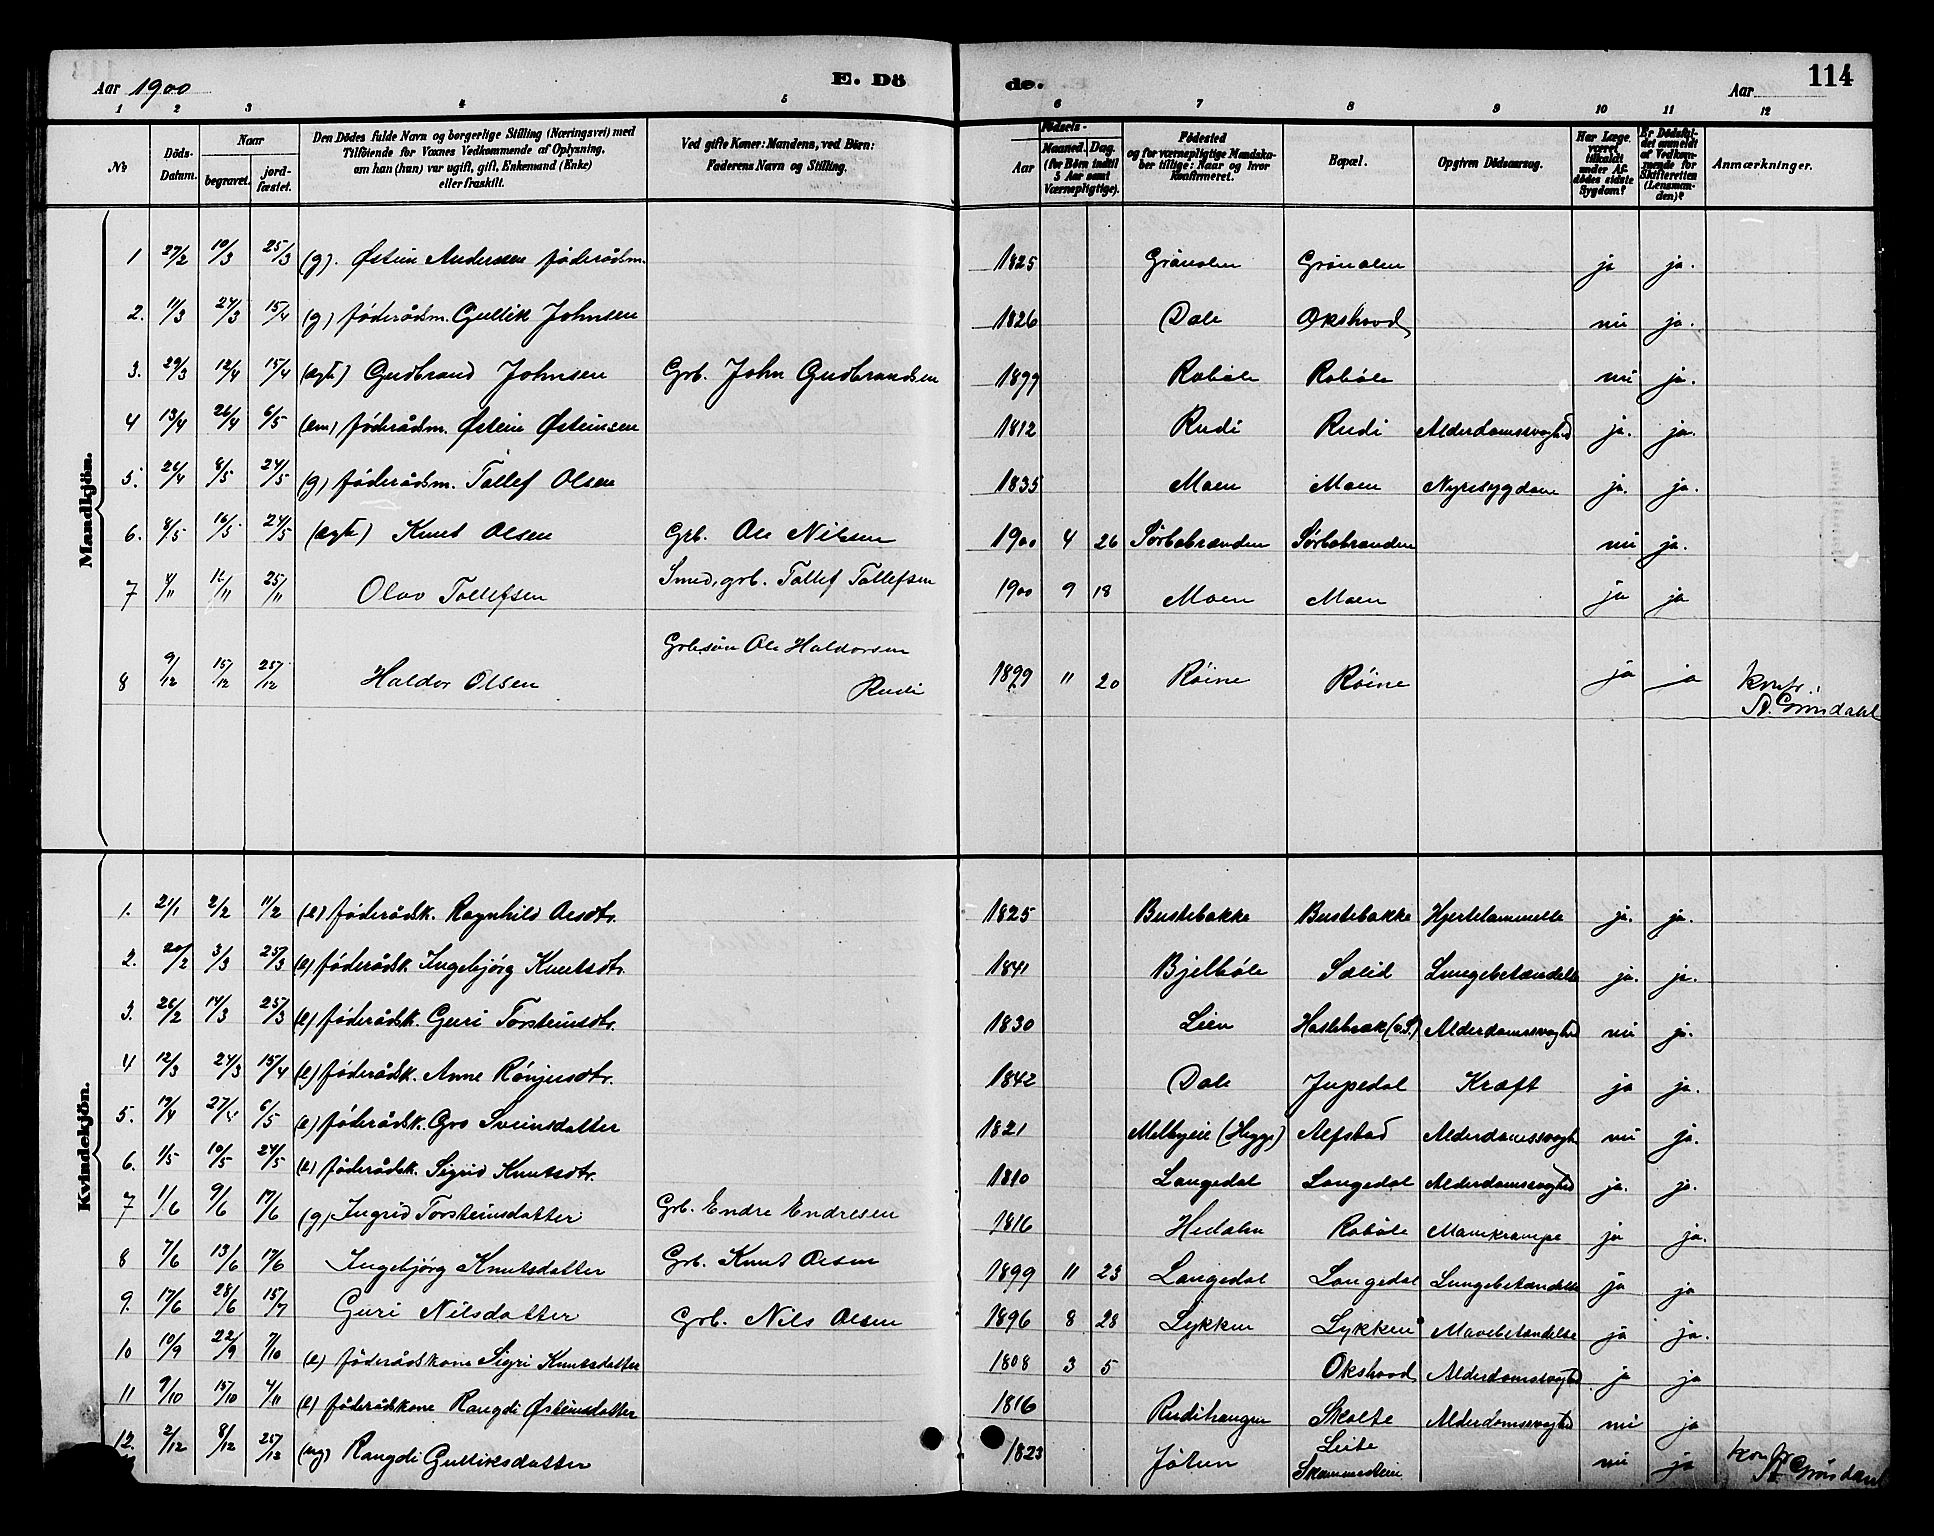 Aar 1900 E. Dö de. Aar 114
1 2 3 4 5 6 7 8 9 10 11 12
№
Döds-Datum.
Naar
begravet. jordfæstet.
Den Dödes fulde Navn og borgerlige Stilling (Næringsvei) med
Tilföiende for Voxnes Vedkommende af Oplysning,
om han (hun) var ugift, gift, Enkemand (Enke)
eller fraskilt.
Ved gifte Koner: Mandens, ved Börn:
Faderens Navn og Stilling.
Födsels-
Aar Maaned. Dag.
(for Börn indtil
5 Aar samt
Værnepligtige).
Födested
og for værnepligtige Mandskaber tillige: Naar og hvor
konfirmeret.
Bopæl.
Opgiven Dödsaarsag.
Har Læge
været
tilkaldt
under Afdödes sidste
Sygdom?
Er Dödsfaldet anmeldt
af Vedkommende for
Skifteretten
(Lensmanden)?
Anmærkninger.
Mandkjön.
1 27/2 10/3 25/3 (g). Østein Andersen föderådsm. 1825 Grönolen Grönolen ja ja.
2. 11/3 24/3 15/4 (g) föderådsm. Gullik Johnsen 1826 Dale Okshovd nei ja.
3. 29/3 12/4 15/4 (ægte) Gudbrand Johnsen Grb. John Gudbrandsen 1899 Robøle Robøle nei ja.
4 13/4 26/4 6/5 (em) föderådsm. Østein Østeinsen 1812 Rudi Rudi Alderdomssvaghed ja. ja.
5. 26/4 8/5 24/5 (g) föderådsm. Tollef Olsen 1835 Moen Moen Nyresygdom ja. ja.
6. 8/5 16/5 24/5 (ægte) Knut Olsen Grb. Ole Nilsen 1900 4 26 Sørbøbraaden Sørbøbraaden nei ja.
7 4/11 12/11 25/11 Olav Tollefsen Smed, grb. Tollef Tollefsen 1900 9 18 Moen Moen ja ja
8 9/12 15/12 25/12 Haldor Olsen Grbsön Ole Haldorsen
Rudi 1899 11 20 Röine Röine ja ja konfr.
A. Gröndahl
Kvindekjön.
1. 21/1 2/2 11/2 (e) föderådsk. Ragnhild Olsdtr. 1825 Bustebakke Bustebakke Hjertelammelse ja. ja.
2. 20/2 3/3 25/3 (e) föderådsk. Ingebjörg Knutsdtr. 1841 Bjelbøle Sælid Lungebetændelse ja. ja.
3. 26/2 14/3 25/3 (e) föderådsk. Guri Torsteinsdtr. 1830 Lien Haslebræk (v.S.) Alderdomssvaghed nei ja.
4 12/3 24/3 15/4 (e) föderådsk. Anne Rönjusdtr. 1842 Dale Jupedal Kræft ja ja.
5. 17/4 27/4 6/5 (e) föderådsk. Gro Sveinsdatter 1821 Melbyeie (Hegge) Alfstad Alderdomssvagh nei ja.
6. 1/5 10/5 24/5 (e) föderådsk. Sigrid Knutsdtr. 1810 Langedal Langedal Alderdomssvaghed ja. ja.
7 1/6 9/6 17/6 (g) Ingrid Torsteinsdatter Grb. Endre Endresen 1816 Hedalen Robøle Mavekrampe ja ja.
8 7/6 13/6 17/6 Ingebjörg Knutsdatter Grb. Knut Olsen 1899 11 23 Langedal Langedal Lungebetændelse ja ja
9. 17/6 28/6 15/7 Guri Nilsdatter Grb. Nils Olsen 1896 8 28 Lykken Lykken Mavebetændelse ja ja.
10 10/9 22/9 7/10 (e) föderådskone Sigri Knutsdatter 1808 3 5 Okshovd Alderdomssvaghed ja ja
11 9/10 15/10 4/11 (e) föderådskone Rangdi Østeinsdatter 1816 Rudihaugen Skolte Alderdomssvaghed nei ja
12. 2/12 8/12 25/12 (ug) Rangdi Gulliksdatter 1823 Jötun Leite
Skammestein nei ja konfr
A Gröndahl